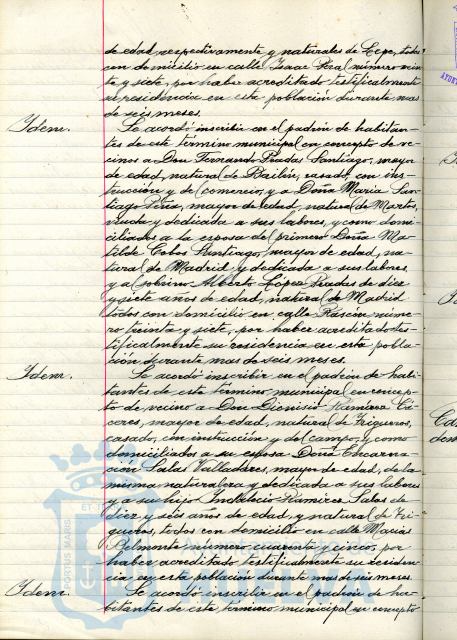 de edad, respectivamente y naturales de Lepe, todos
con domicilio en calle Isaac Peral número vein-
te y siete, por haber acreditado testificalmente
su residencia en esta población durante mas
de seis meses.
Idem.
Se acordó inscribir en el padrón de habitan-
tes de este término municipal en concepto de ve-
cinos a Don Fernando Pradas Santiago, mayor
de edad, natural de Bailén, casado, con ins-
trucción y de comercio, y a Doña Maria San-
tiago mayor de edad, natural de Martos,
viuda y dedicada a sus labores, y como domi-
ciliados a la esposa del primero Doña Ma-
tilde Cobos Santiago, mayor de edad, na-
tural de Madrid y dedicada a sus labores
y al sobrino Alberto López Pradas de diez
y siete años de edad, natural de Madrid
todos con domicilio en calle Rascón núme-
ro treinta y siete, por haber acreditado tes-
tificalmente su residencia en esta pobla-
ción durante mas de seis meses.
Idem.
Se acordó inscribir en el padrón de habi-
tantes de este término municipal en concep-
to de vecino a Don Dionisio Ramírez Cá-
ceres, mayor de edad, natural de Trigueros,
casado, con instrucción y del campo, y como
domiciliados a su esposa Doña Encarna-
ción Salas Valladares, mayor de edad, de la
misma naturaleza y dedicada a sus labores
y a su hijo Indalecio Ramírez Salas de
diez y seis años de edad, y natural de Tri-
gueros, todos con domicilio en calle Macías
Belmonte número cuarenta y cinco, por
haber acreditado testificalmente su residen-
cia en esta población durante mas de seis meses.
Idem.
Se acordó inscribir en el padrón de ha-
bitantes de este término municipal en concepto
PORTUS MARIS
Ayuntamiento de
HUELVA